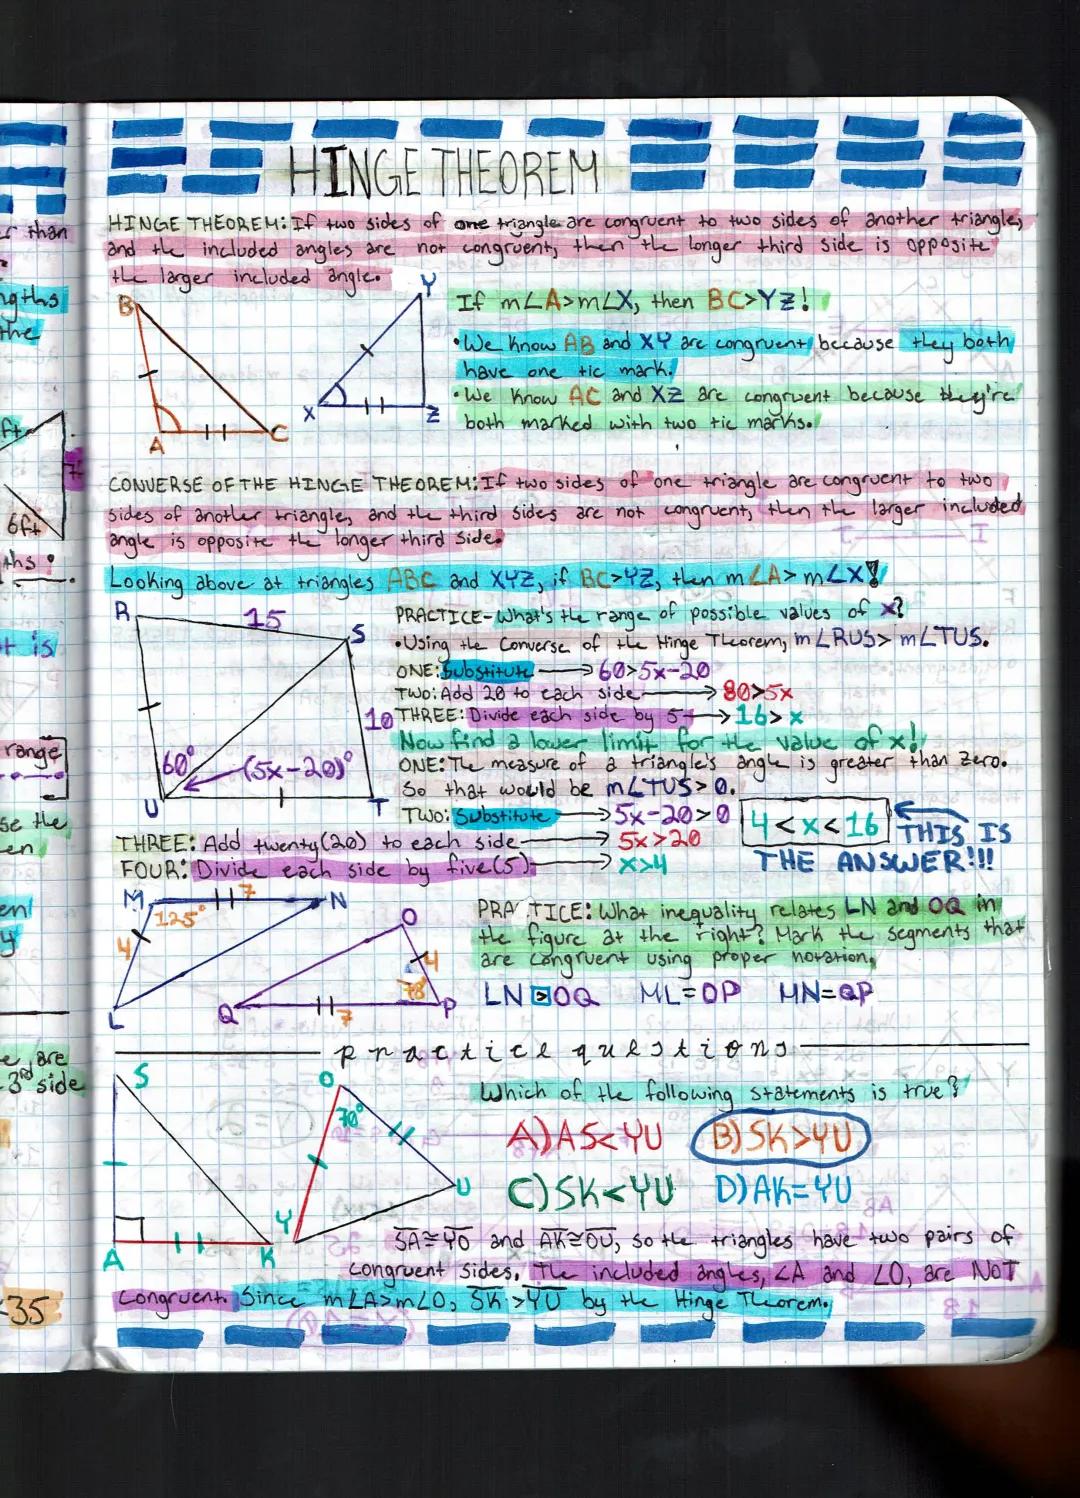 HINGE THEOREM
HINGE THEOREM: If two sides of one triangle are congruent to two sides of another triangle,
and the included angles are not congruent, then the longer third side is opposite
the larger included angle.
B
A
C
Y
X
Z
If m∠A>m∠X, then BC>YZ!
•We know AB and XY are congruent because they both
have one tic mark.
•We know AC and XZ are congruent because they're
both marked with two tic marks.
CONVERSE OF THE HINGE THEOREM: If two sides of one triangle are congruent to two
sides of another triangle, and the third sides are not congruent, then the larger included
angle is opposite the longer third side.
Looking above at triangles ABC and XYZ, if BC>YZ, then m∠A>m∠X!
R
15
S
10
60°
(5x-20)°
U
T
PRACTICE-What's the range of possible values of x?
•Using the Converse of the Hinge Theorem, m∠RUS>m∠TUS.
ONE: Substitute → 60>5x-20
TWO: Add 20 to each side → 80>5x
THREE: Divide each side by 5 → 16>x
Now find a lower limit for the value of x!
ONE: The measure of a triangle's angle is greater than zero.
So that would be m∠TUS>0.
TWO: Substitute → 5x-20>0
THREE: Add twenty (20) to each side → 5x>20
FOUR: Divide each side by five (5) → x>4
4<x<16
THIS IS
THE ANSWER!!!
M
7
N
125°
4
L
O
4
78°
Q
7
P
PRACTICE: What inequality relates LN and OQ in
the figure at the right? Mark the segments that
are congruent using proper notation.
LN > OQ ML=OP MN=QP
practice questions
S
A
K
O
70°
U
Y
Which of the following statements is true?
A) AS<YU B) SK>YU
C) SK<YU D) AK=YU
SA≅YO and AK≅OU, so the triangles have two pairs of
congruent sides. The included angles, ∠A and ∠O, are NOT
congruent. Since m∠A>m∠O, SK>YU by the Hinge Theorem.
r than
ngths
the
ft
7
6ft
ths
t is
range
se the
en
en
y
e are
3rd side
-35